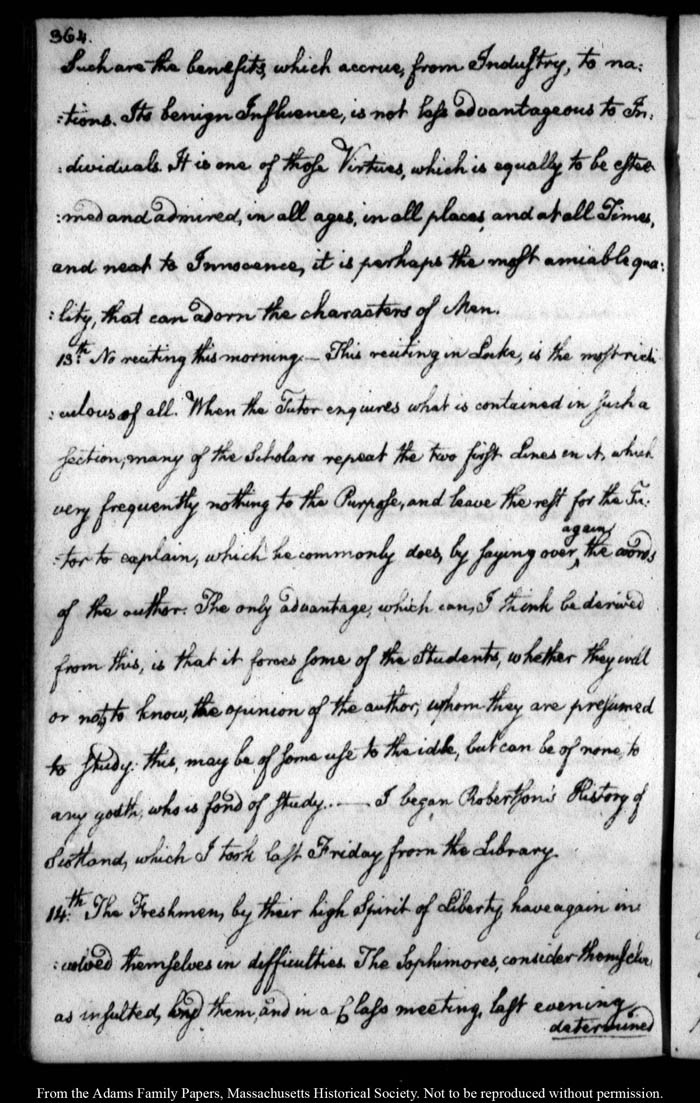 364.
Such are the benefits, which accrue, from Industry, to na:
:tions. Its benign Influence, is not less advantageous to In:
:dividuals. It is one of those Virtues, which is equally to be estee
:med and admired, in all ages, in all places, and at all Times,
and next to Innocence, it is perhaps the most amiable qua:
:lity, that can adorn the characters of Men.
13th. No reciting this morning.— This reciting in Locke, is the most ridi
:culous of all. When the Tutor enquires what is contained in such a
section, many of the Scholars repeat the two first Lines in it, which
very frequently nothing to the Purpose, and leave the rest for the Tu:
:tor to explain, which he commonly does, by saying over again the words
of the author. The only advantage, which can, I think be derived
from this, is that it forces some of the Students, whether they will
or not, to know, the opinion of the author, whom they are presumed
to study: this, may be of some use to the idle, but can be of none, to
any youth, who is fond of study. —— I began Robertson's History of
Scotland, which I took last Friday from the Library.
14th. The Freshmen, by their high Spirit of Liberty, have again in:
:volved themselves in difficulties. The Sophimores, consider themselves
as insulted, by them, and in a Class meeting, last evening,
determined
From the Adams Family Papers, Massachusetts Historical Society. Not to be reproduced without permission.